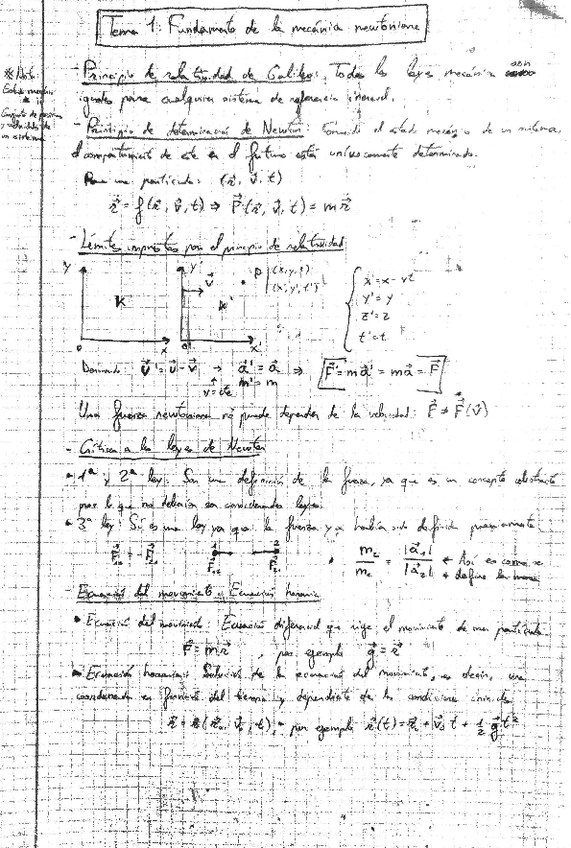 Tema 1: Fundamentos de la mecánica newtoniana
* Nota:
Estado mecánico
Conjunto de posiciones
y velocidades de
un sistema
- Principio de relatividad de Galileo: Todas las leyes mecánicas son
iguales para cualquier sistema de referencia inercial.
- Principio de determinación de Newton: Conocido el estado mecánico de un sistema,
el comportamiento de este en el futuro está unívocamente determinado.
Para una partícula: (r⃗, v⃗, t)
r⃗̈ = f(r⃗, v⃗, t) ⇒ F⃗(r⃗, v⃗, t) = m r⃗̈
- Límites impuestos por el principio de relatividad
y y' v⃗ P (x, y, t)
(x', y', t')
K K'
o x o' x'
x' = x - vt
y' = y
z' = z
t' = t
Derivando: v⃗' = v⃗ - v⃗ → a⃗' = a⃗ ⇒ F⃗' = m a⃗' = m a⃗ = F⃗
v = cte m' = m
Una fuerza newtoniana no puede depender de la velocidad: F⃗ ≠ F⃗(v⃗)
- Crítica a las leyes de Newton
• 1ª y 2ª ley: Son una definición de la fuerza, ya que es un concepto abstracto
por lo que no deberían ser consideradas leyes.
• 3ª ley: Sí es una ley ya que la fuerza ya había sido definida previamente.
F⃗₁₂ = -F⃗₂₁ F⃗₁₂ F⃗₂₁
|a⃗₁| / |a⃗₂| ← Así es como se
define la masa
- Ecuación del movimiento y Ecuación horaria
• Ecuación del movimiento: Ecuación diferencial que rige el movimiento de una partícula
F⃗ = m r⃗̈, por ejemplo g⃗ = r⃗̈
• Ecuación horaria: Solución de la ecuación del movimiento, es decir, una
coordenada en función del tiempo y dependiente de las condiciones iniciales
r⃗ = r⃗(r⃗₀, v⃗₀, t), por ejemplo r⃗(t) = r⃗₀ + v⃗₀ t + 1/2 g⃗ t²